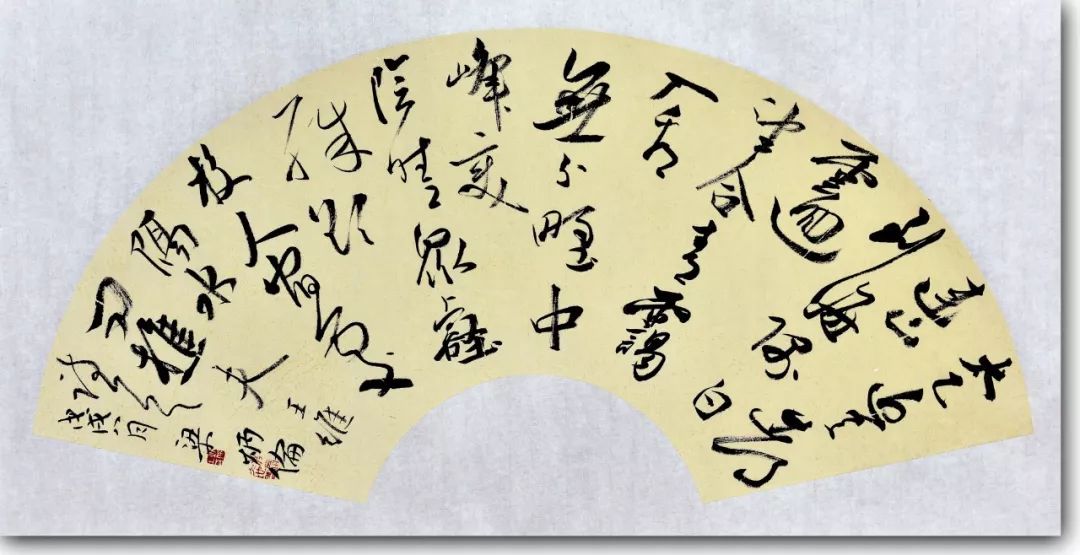 太乙近天都
連山
到海隅白
雲迴
望合青靄
入看
無分野中
峰變
陰晴眾壑
殊欲
投人處宿
隔水
問樵夫王維
戊戌八月梁炳倫